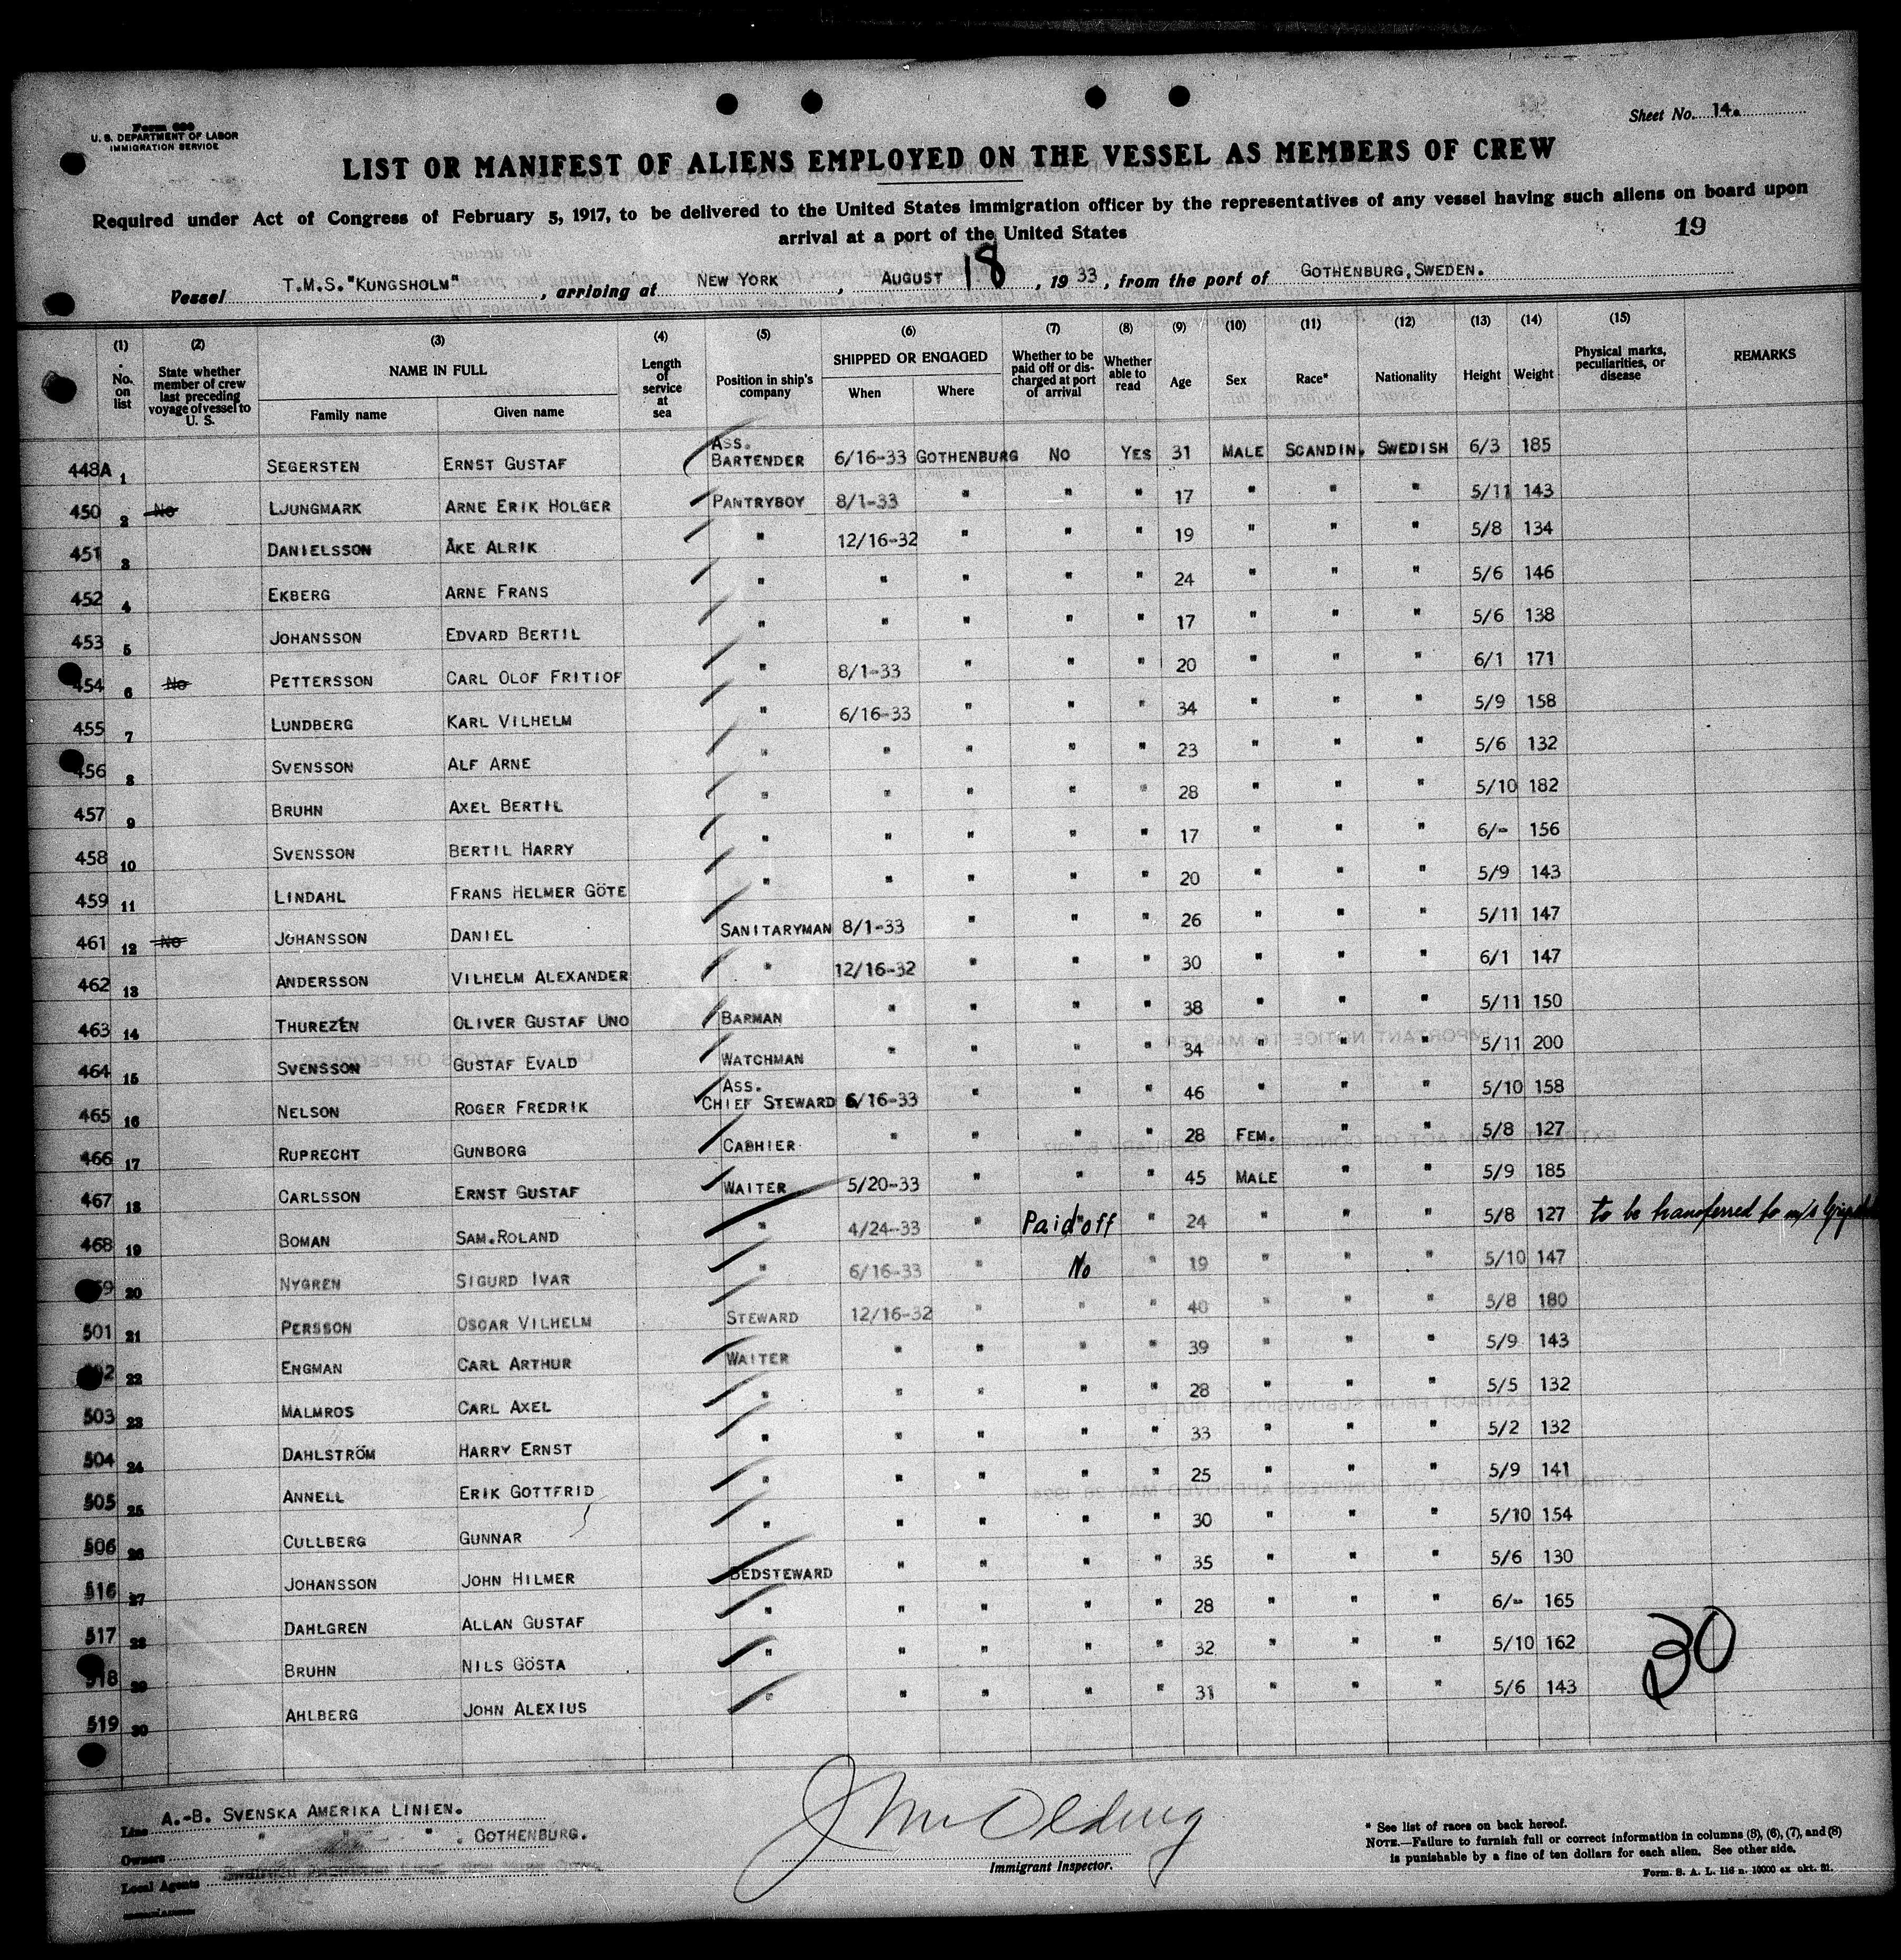 Form 680
U. S. DEPARTMENT OF LABOR
IMMIGRATION SERVICE
Sheet No. 14.
LIST OR MANIFEST OF ALIENS EMPLOYED ON THE VESSEL AS MEMBERS OF CREW
Required under Act of Congress of February 5, 1917, to be delivered to the United States immigration officer by the representatives of any vessel having such aliens on board upon
arrival at a port of the United States
19
Vessel T.M.S. "KUNGSHOLM", arriving at NEW YORK, AUGUST 18, 1933, from the port of GOTHENBURG, SWEDEN.
(1) (2) (3) (4) (5) (6) (7) (8) (9) (10) (11) (12) (13) (14) (15)
No. on list State whether member of crew last preceding voyage of vessel to U. S. NAME IN FULL Family name Given name Length of service at sea Position in ship's company SHIPPED OR ENGAGED When Where Whether to be paid off or discharged at port of arrival Whether able to read Age Sex Race* Nationality Height Weight Physical marks, peculiarities, or disease REMARKS
448A 1 SEGERSTEN ERNST GUSTAF ASS. BARTENDER 6/16-33 GOTHENBURG NO YES 31 MALE SCANDIN. SWEDISH 6/3 185
450 2 No LJUNGMARK ARNE ERIK HOLGER PANTRYBOY 8/1-33 " " " 17 " " " 5/11 143
451 3 DANIELSSON ÅKE ALRIK " 12/16-32 " " " 19 " " " 5/8 134
452 4 EKBERG ARNE FRANS " " " " " 24 " " " 5/6 146
453 5 JOHANSSON EDVARD BERTIL " " " " " 17 " " " 5/6 138
454 6 No PETTERSSON CARL OLOF FRITIOF " 8/1-33 " " " 20 " " " 6/1 171
455 7 LUNDBERG KARL VILHELM " 6/16-33 " " " 34 " " " 5/9 158
456 8 SVENSSON ALF ARNE " " " " " 23 " " " 5/6 132
457 9 BRUHN AXEL BERTIL " " " " " 28 " " " 5/10 182
458 10 SVENSSON BERTIL HARRY " " " " " 17 " " " 6/- 156
459 11 LINDAHL FRANS HELMER GÖTE " " " " " 20 " " " 5/9 143
461 12 No JOHANSSON DANIEL SANITARYMAN 8/1-33 " " " 26 " " " 5/11 147
462 13 ANDERSSON VILHELM ALEXANDER " 12/16-32 " " " 30 " " " 6/1 147
463 14 THUREZÉN OLIVER GUSTAF UNO BARMAN " " " " 38 " " " 5/11 150
464 15 SVENSSON GUSTAF EVALD WATCHMAN " " " " 34 " " " 5/11 200
465 16 NELSON ROGER FREDRIK ASS. CHIEF STEWARD 6/16-33 " " " 46 " " " 5/10 158
466 17 RUPRECHT GUNBORG CASHIER " " " " 28 FEM. " " 5/8 127
467 18 CARLSSON ERNST GUSTAF WAITER 5/20-33 " " " 45 MALE " " 5/9 185
468 19 BOMAN SAM.ROLAND " 4/24-33 " Paid off " 24 " " " 5/8 127 to be transferred to m/s
69 20 NYGREN SIGURD IVAR " 6/16-33 " No " 19 " " " 5/10 147
501 21 PERSSON OSCAR VILHELM STEWARD 12/16-32 " " " 40 " " " 5/8 180
02 22 ENGMAN CARL ARTHUR WAITER " " " " 39 " " " 5/9 143
503 23 MALMROS CARL AXEL " " " " " 28 " " " 5/5 132
504 24 DAHLSTRÖM HARRY ERNST " " " " " 33 " " " 5/2 132
505 25 ANNELL ERIK GOTTFRID " " " " " 25 " " " 5/9 141
506 26 CULLBERG GUNNAR " " " " " 30 " " " 5/10 154
516 27 JOHANSSON JOHN HILMER BEDSTEWARD " " " " 35 " " " 5/6 130
517 28 DAHLGREN ALLAN GUSTAF " " " " " 28 " " " 6/- 165
518 29 BRUHN NILS GÖSTA " " " " " 32 " " " 5/10 162
519 30 AHLBERG JOHN ALEXIUS " " " " " 31 " " " 5/6 143
30
Line A.-B. SVENSKA AMERIKA LINIEN.
Owners " " " . GOTHENBURG.
Local Agents
Immigrant Inspector.
* See list of races on back hereof.
NOTE.—Failure to furnish full or correct information in columns (5), (6), (7), and (8)
is punishable by a fine of ten dollars for each alien. See other side.
Form. S. A. L. 116 n. 10000 ex okt. 31.